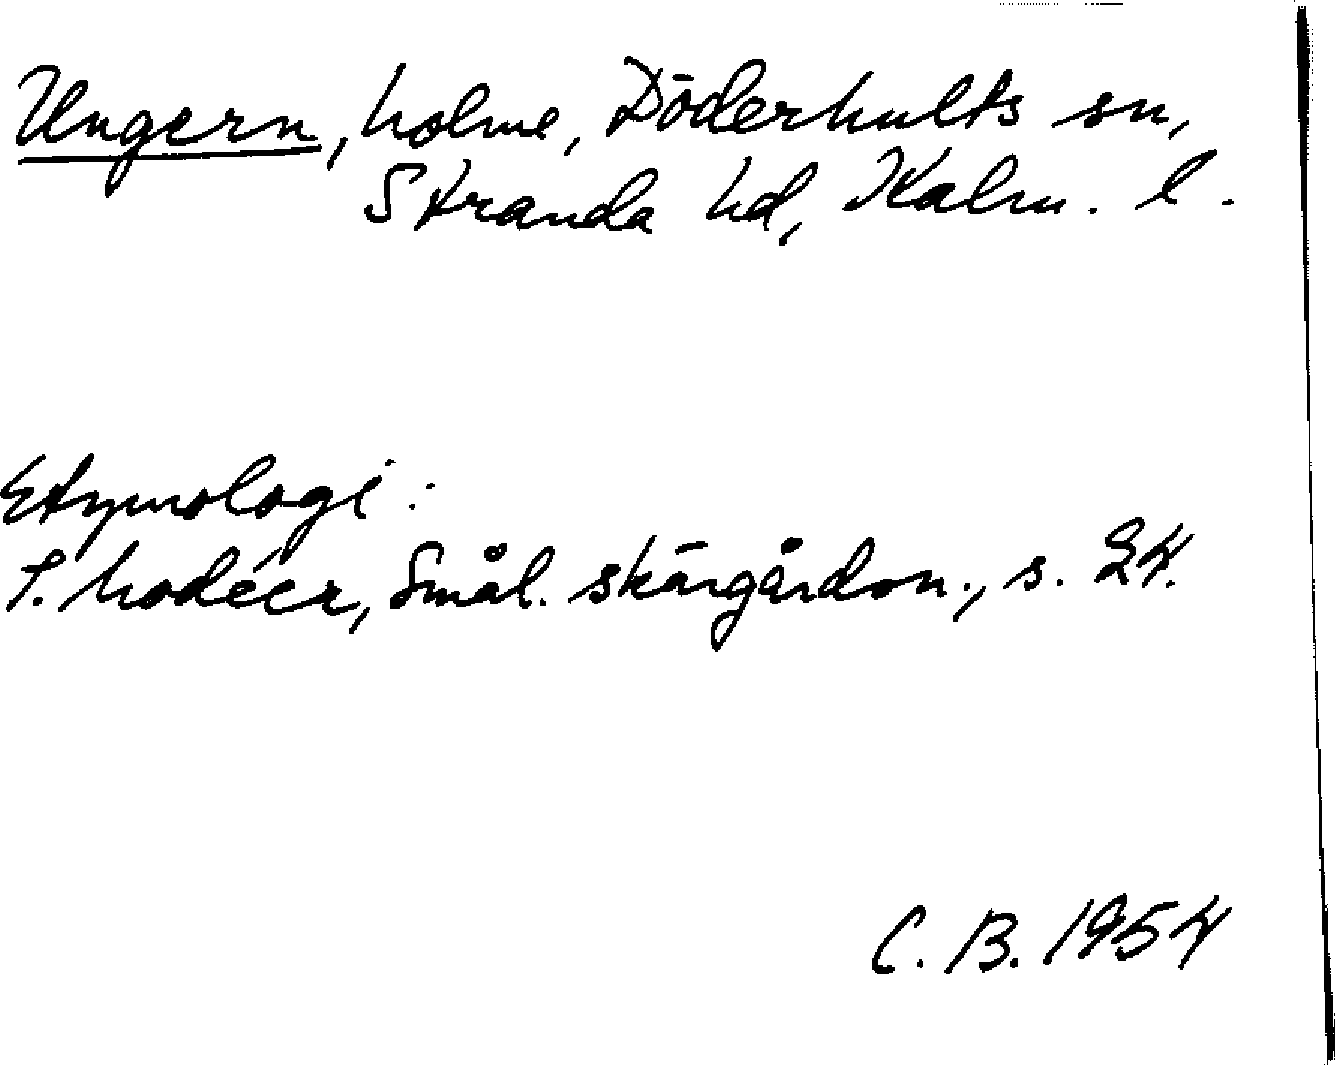 Ungern, holme, Döderhults sn,
Stranda hd, Kalm. l.
Etymologi:
I. Modéer, Smål. skärgårdsn., s. 24.
C. B. 1954